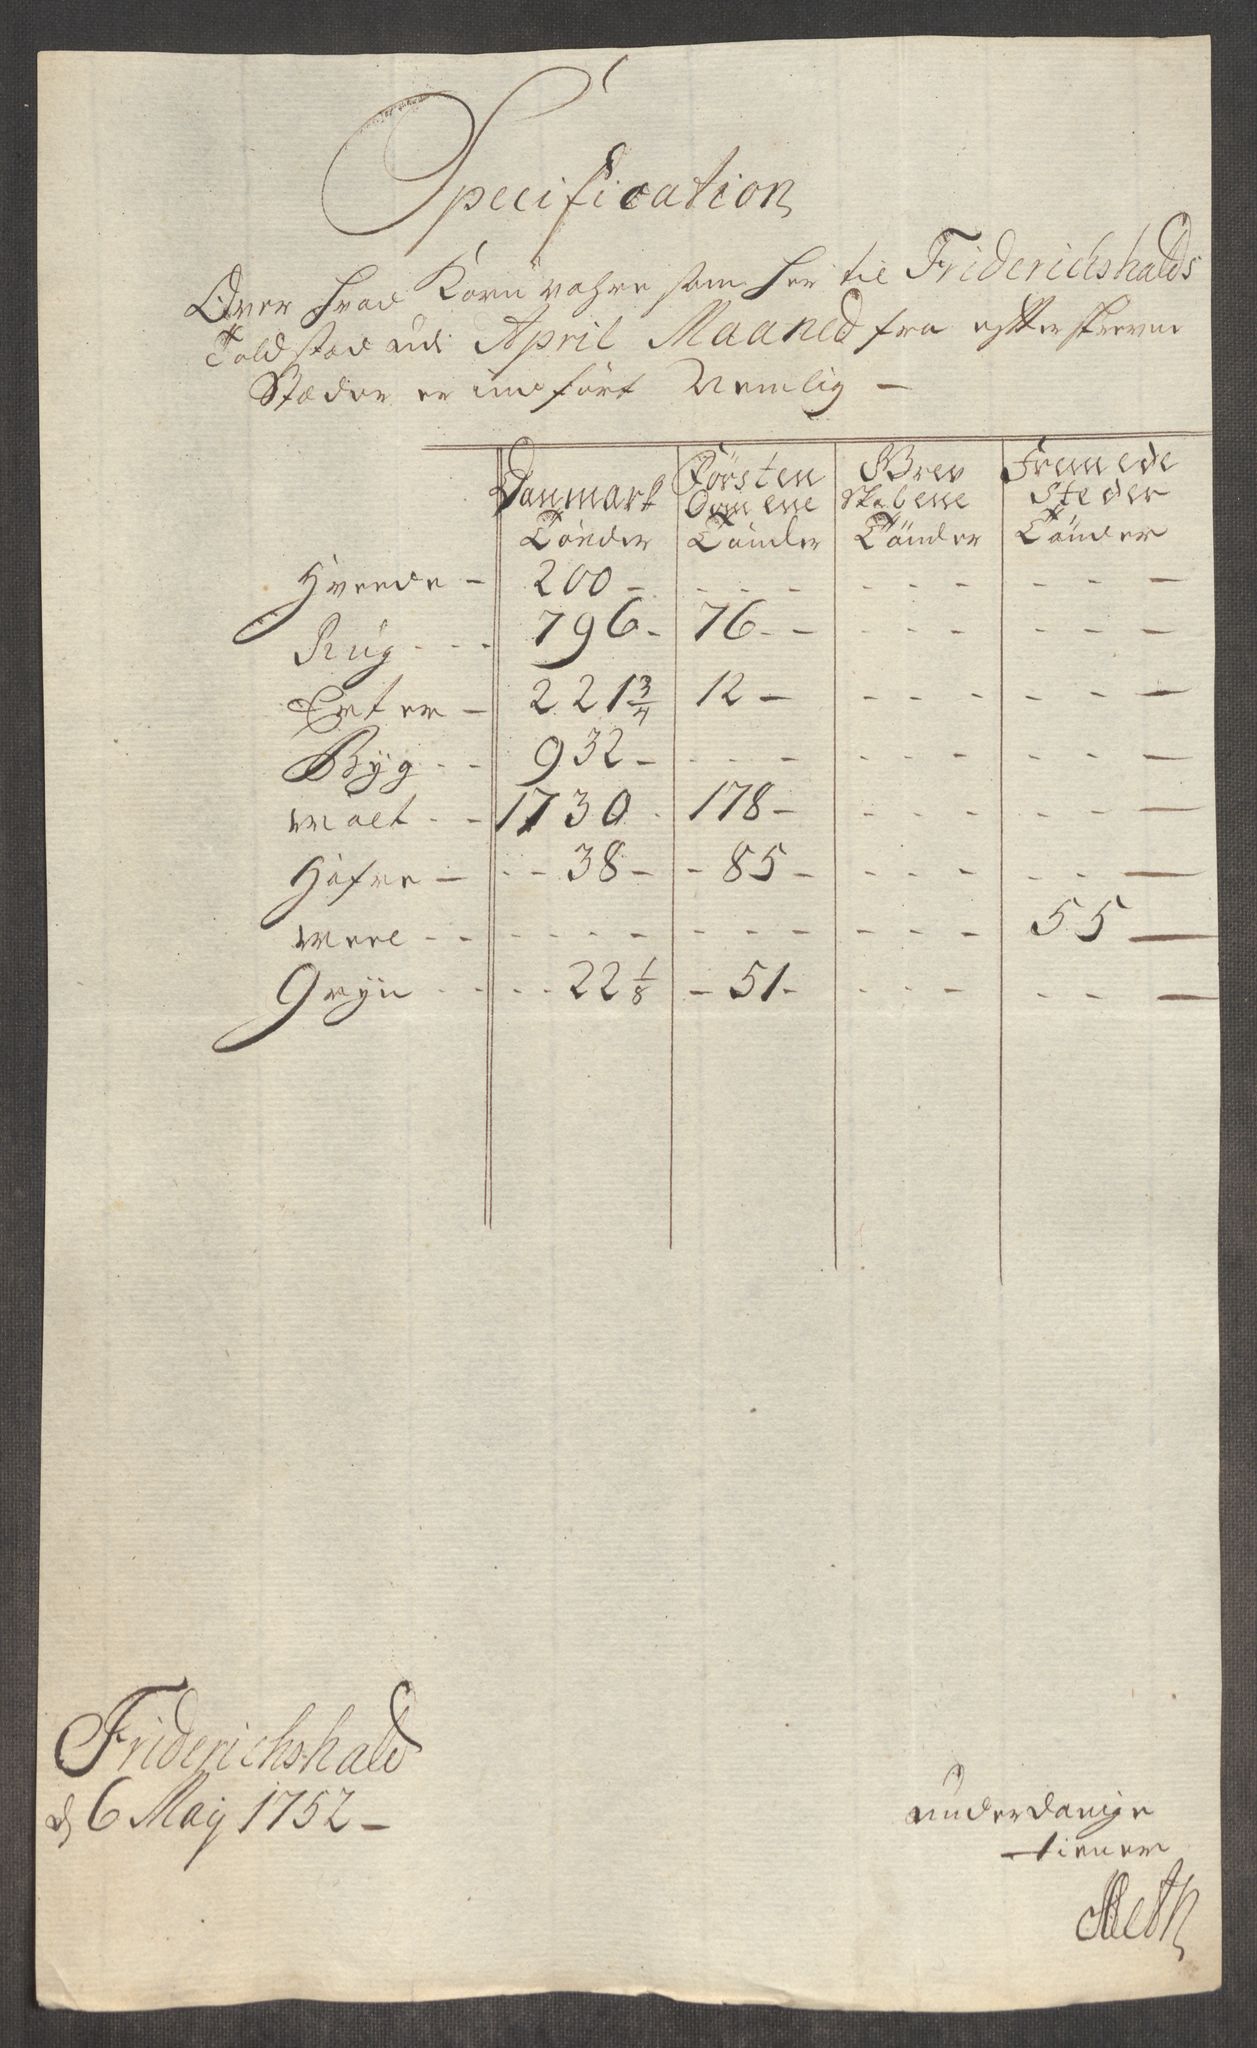 Specification
Over hvad Korn vahre som her til Friderichshalds
Told stæd udi April Maaned fra efter skrevne
Stæder er ind ført Nemlig –
Danmark Förstendommene Grevskabene Fremede Steder
Tönder Tönder Tönder Tönder
Hvede – 200 – - - - - - - - - –
Rug - - - 796 - 76 - - - - - - - –
Erter – 221 3/4 12 – - - - - - –
Byg - - 932 - - - - - - - - - –
Malt - - 1730 - 178 - - - - - - –
Hafre – - - 38 - - 85 - - - - - - –
Meel - - - - - - - - - - - - - - 55 –
Gryn - - - - 22 1/8 - 51 - - - - - - –
Friderichshald
d 6 May 1752 –
underdanige
tiener